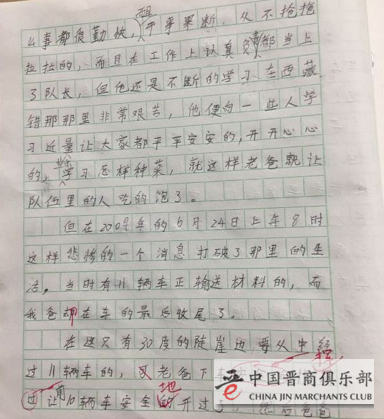 么事都很勤快,干事果断,从不拖拖
拉拉的,而且在工作上认真 都当上
了队长,但他还是不断的学习,在西藏
错那那里非常艰苦,他便向一些人学
习尽量让大家都平平安安的,开开心心
的,学习怎样种菜,就这样老爸就让
队伍里的人吃的饱了。
但在200 年的6月24日上午8时
这样悲惨的一个消息打破了那里的生
活。当时有11辆车正输送材料的,而
我爸却在车的最后收尾了。
在这只有30度的陡崖边每从中经
过11辆车的,又老爸下车
过让前10辆车安全地的开过
中国晋商俱乐部
CHINA JIN MARCHANTS CLUB